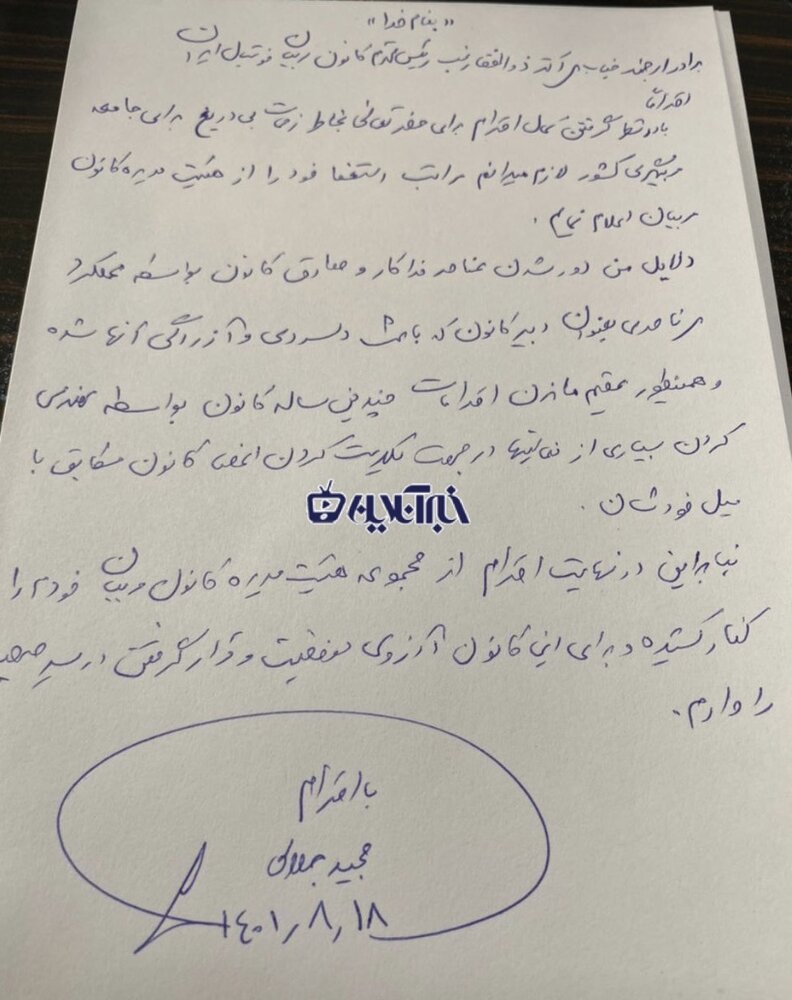 «بنام خدا»
برادر ارجمند جناب آقای ذوالفقارنسب رئیس محترم کانون مربیان فوتبال ایران
احتراماً
با در نظر گرفتن کمال احترام برای حضرتعالی بخاطر زحمات بی دریغ برای جامعه
مربیگری کشور لازم میدانم مراتب استعفا خود را از هئیت مدیره کانون
مربیان اعلام نمایم.
دلایل من دور شدن عناصر فداکار و صادق کانون بواسطه عملکرد
بعنوان دبیر کانون که باعث دلسردی و آزردگی آنها شده
و همینطور عقیم ماندن اقدامات چندین ساله کانون بواسطه مهندسی
کردن بسیاری از فعالیتها در جهت مدیریت کردن اعضای کانون مطابق با
میل خودشان.
خبرآنلاین
بنابراین در نهایت احترام از مجموعه هئیت مدیره کانون مربیان خودم را
کنار کشیده و برای این کانون آرزوی موفقیت و قرار گرفتن در مسیر صحیح
را دارم.
با احترام
مجید جلالی
۱۴۰۱٫۸٫۱۸